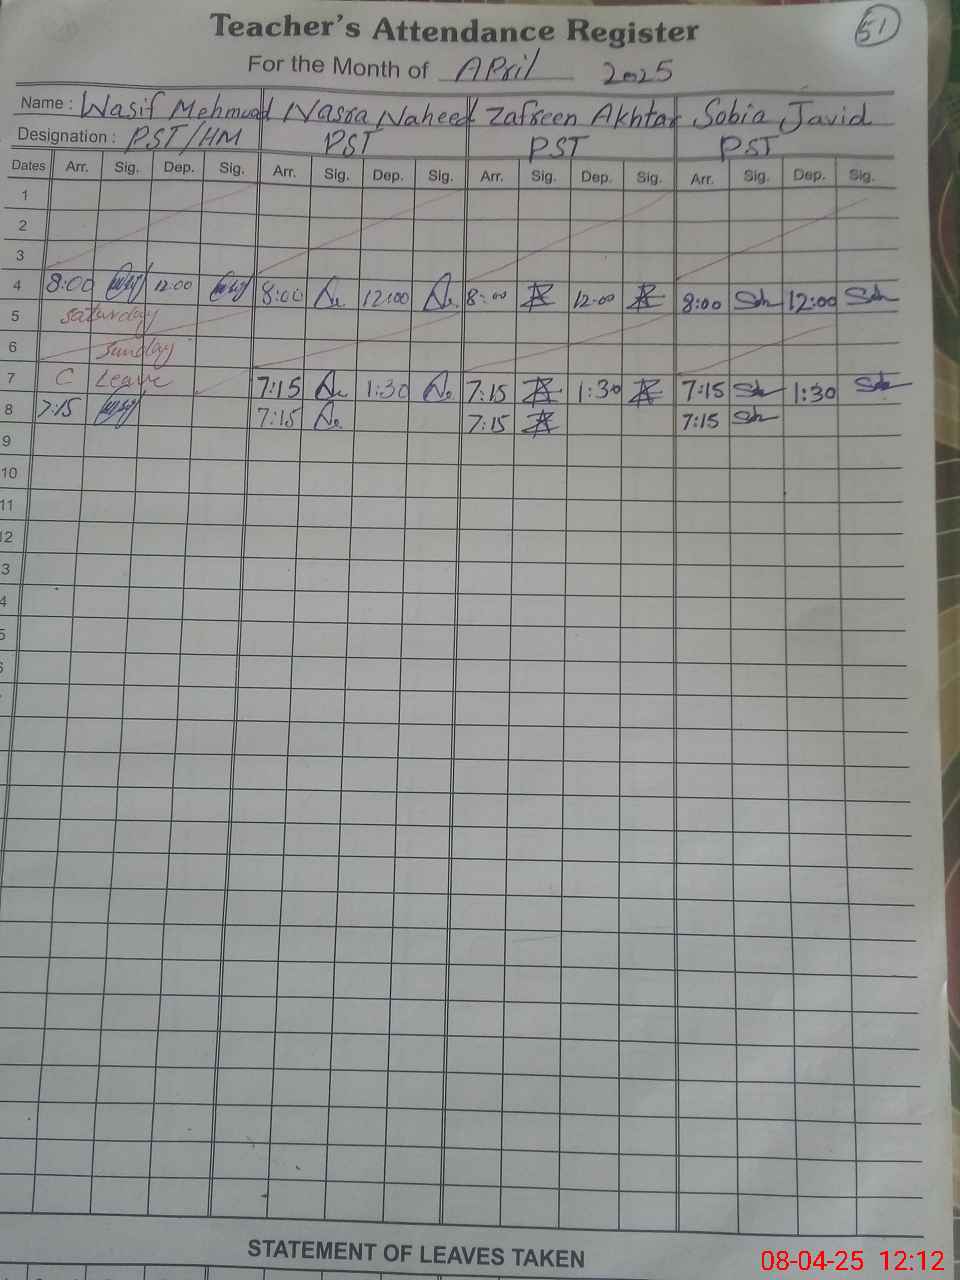 Teacher's Attendance Register
51
For the Month of April 2025
Name : Wasif Mehmood Nasra Naheed Zafreen Akhtar Sobia Javid
Designation : PST/HM PST PST PST
Dates Arr. Sig. Dep. Sig. Arr. Sig. Dep. Sig. Arr. Sig. Dep. Sig. Arr. Sig. Dep. Sig.
1
2
3
4 8:00 12:00 8:00 12:00 8:00 12:00 8:00 12:00
5 Saturday
6 Sunday
7 C Leave 7:15 1:30 7:15 1:30 7:15 1:30
8 7:15 7:15 7:15 7:15
9
10
11
12
3
4
5
STATEMENT OF LEAVES TAKEN
08-04-25 12:12